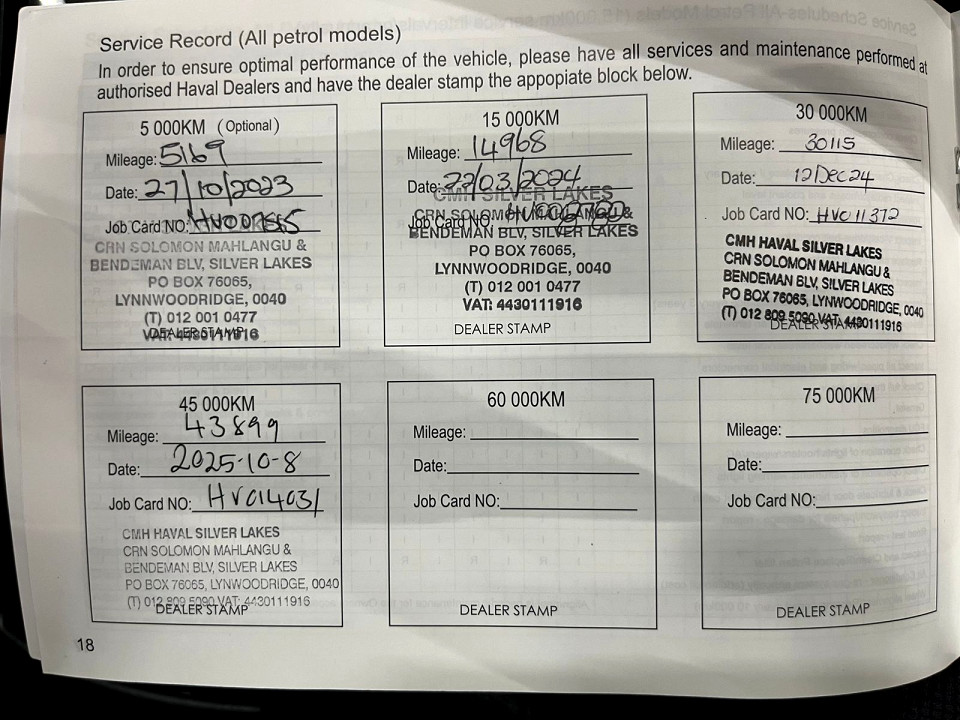 Service Record (All petrol models)
In order to ensure optimal performance of the vehicle, please have all services and maintenance performed at
authorised Haval Dealers and have the dealer stamp the appopiate block below.
5 000KM (Optional)
Mileage: 5169
Date: 27/10/2023
Job Card NO:
CRN SOLOMON MAHLANGU &
BENDEMAN BLV, SILVER LAKES
PO BOX 76065,
LYNNWOODRIDGE, 0040
(T) 012 001 0477
VAT: 4430111916
DEALER STAMP
15 000KM
Mileage: 14968
Date: 22/03/2024
CMH SILVER LAKES
Job Card NO:
CRN SOLOMON MAHLANGU &
BENDEMAN BLV, SILVER LAKES
PO BOX 76065,
LYNNWOODRIDGE, 0040
(T) 012 001 0477
VAT: 4430111916
DEALER STAMP
30 000KM
Mileage: 30115
Date: 12 Dec 24
Job Card NO: HVC11372
CMH HAVAL SILVER LAKES
CRN SOLOMON MAHLANGU &
BENDEMAN BLV, SILVER LAKES
PO BOX 76065, LYNWOODRIDGE, 0040
(T) 012 809 5090 VAT: 4430111916
DEALER STAMP
45 000KM
Mileage: 43899
Date: 2025-10-8
Job Card NO: HVC14031
CMH HAVAL SILVER LAKES
CRN SOLOMON MAHLANGU &
BENDEMAN BLV, SILVER LAKES
PO BOX 76065, LYNWOODRIDGE, 0040
(T) 012 809 5090 VAT: 4430111916
DEALER STAMP
60 000KM
Mileage:
Date:
Job Card NO:
DEALER STAMP
75 000KM
Mileage:
Date:
Job Card NO:
DEALER STAMP
18